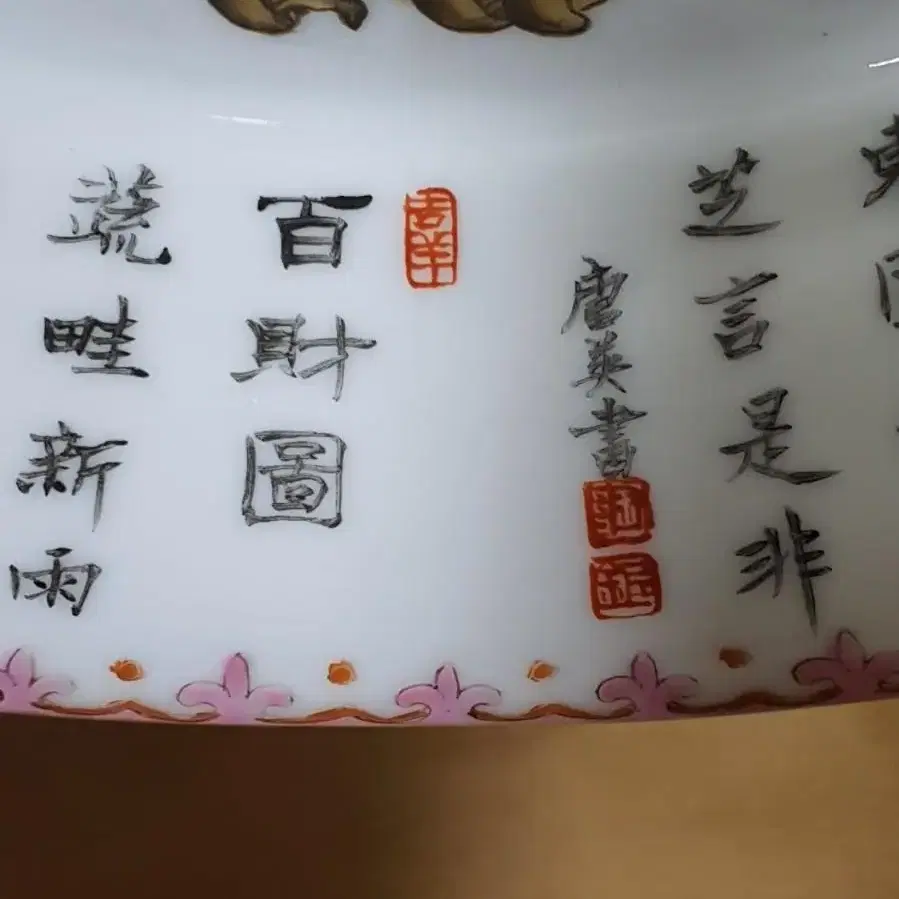 芝言是非
唐英書
百財圖
蔬畦新雨